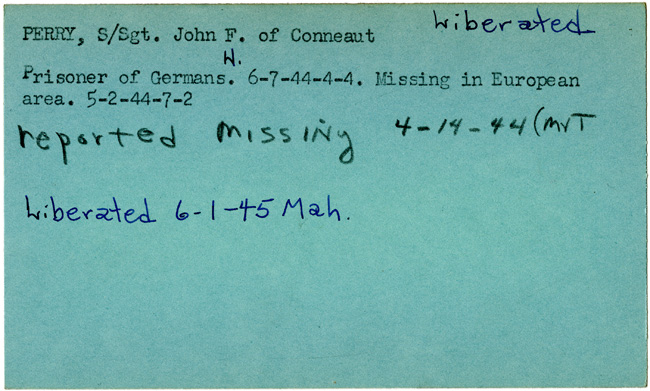 Liberated
PERRY, S/Sgt. John F. of Conneaut
W.
Prisoner of Germans. 6-7-44-4-4. Missing in European
area. 5-2-44-7-2
reported missing 4-14-44 (MVT
Liberated 6-1-45 Mah.